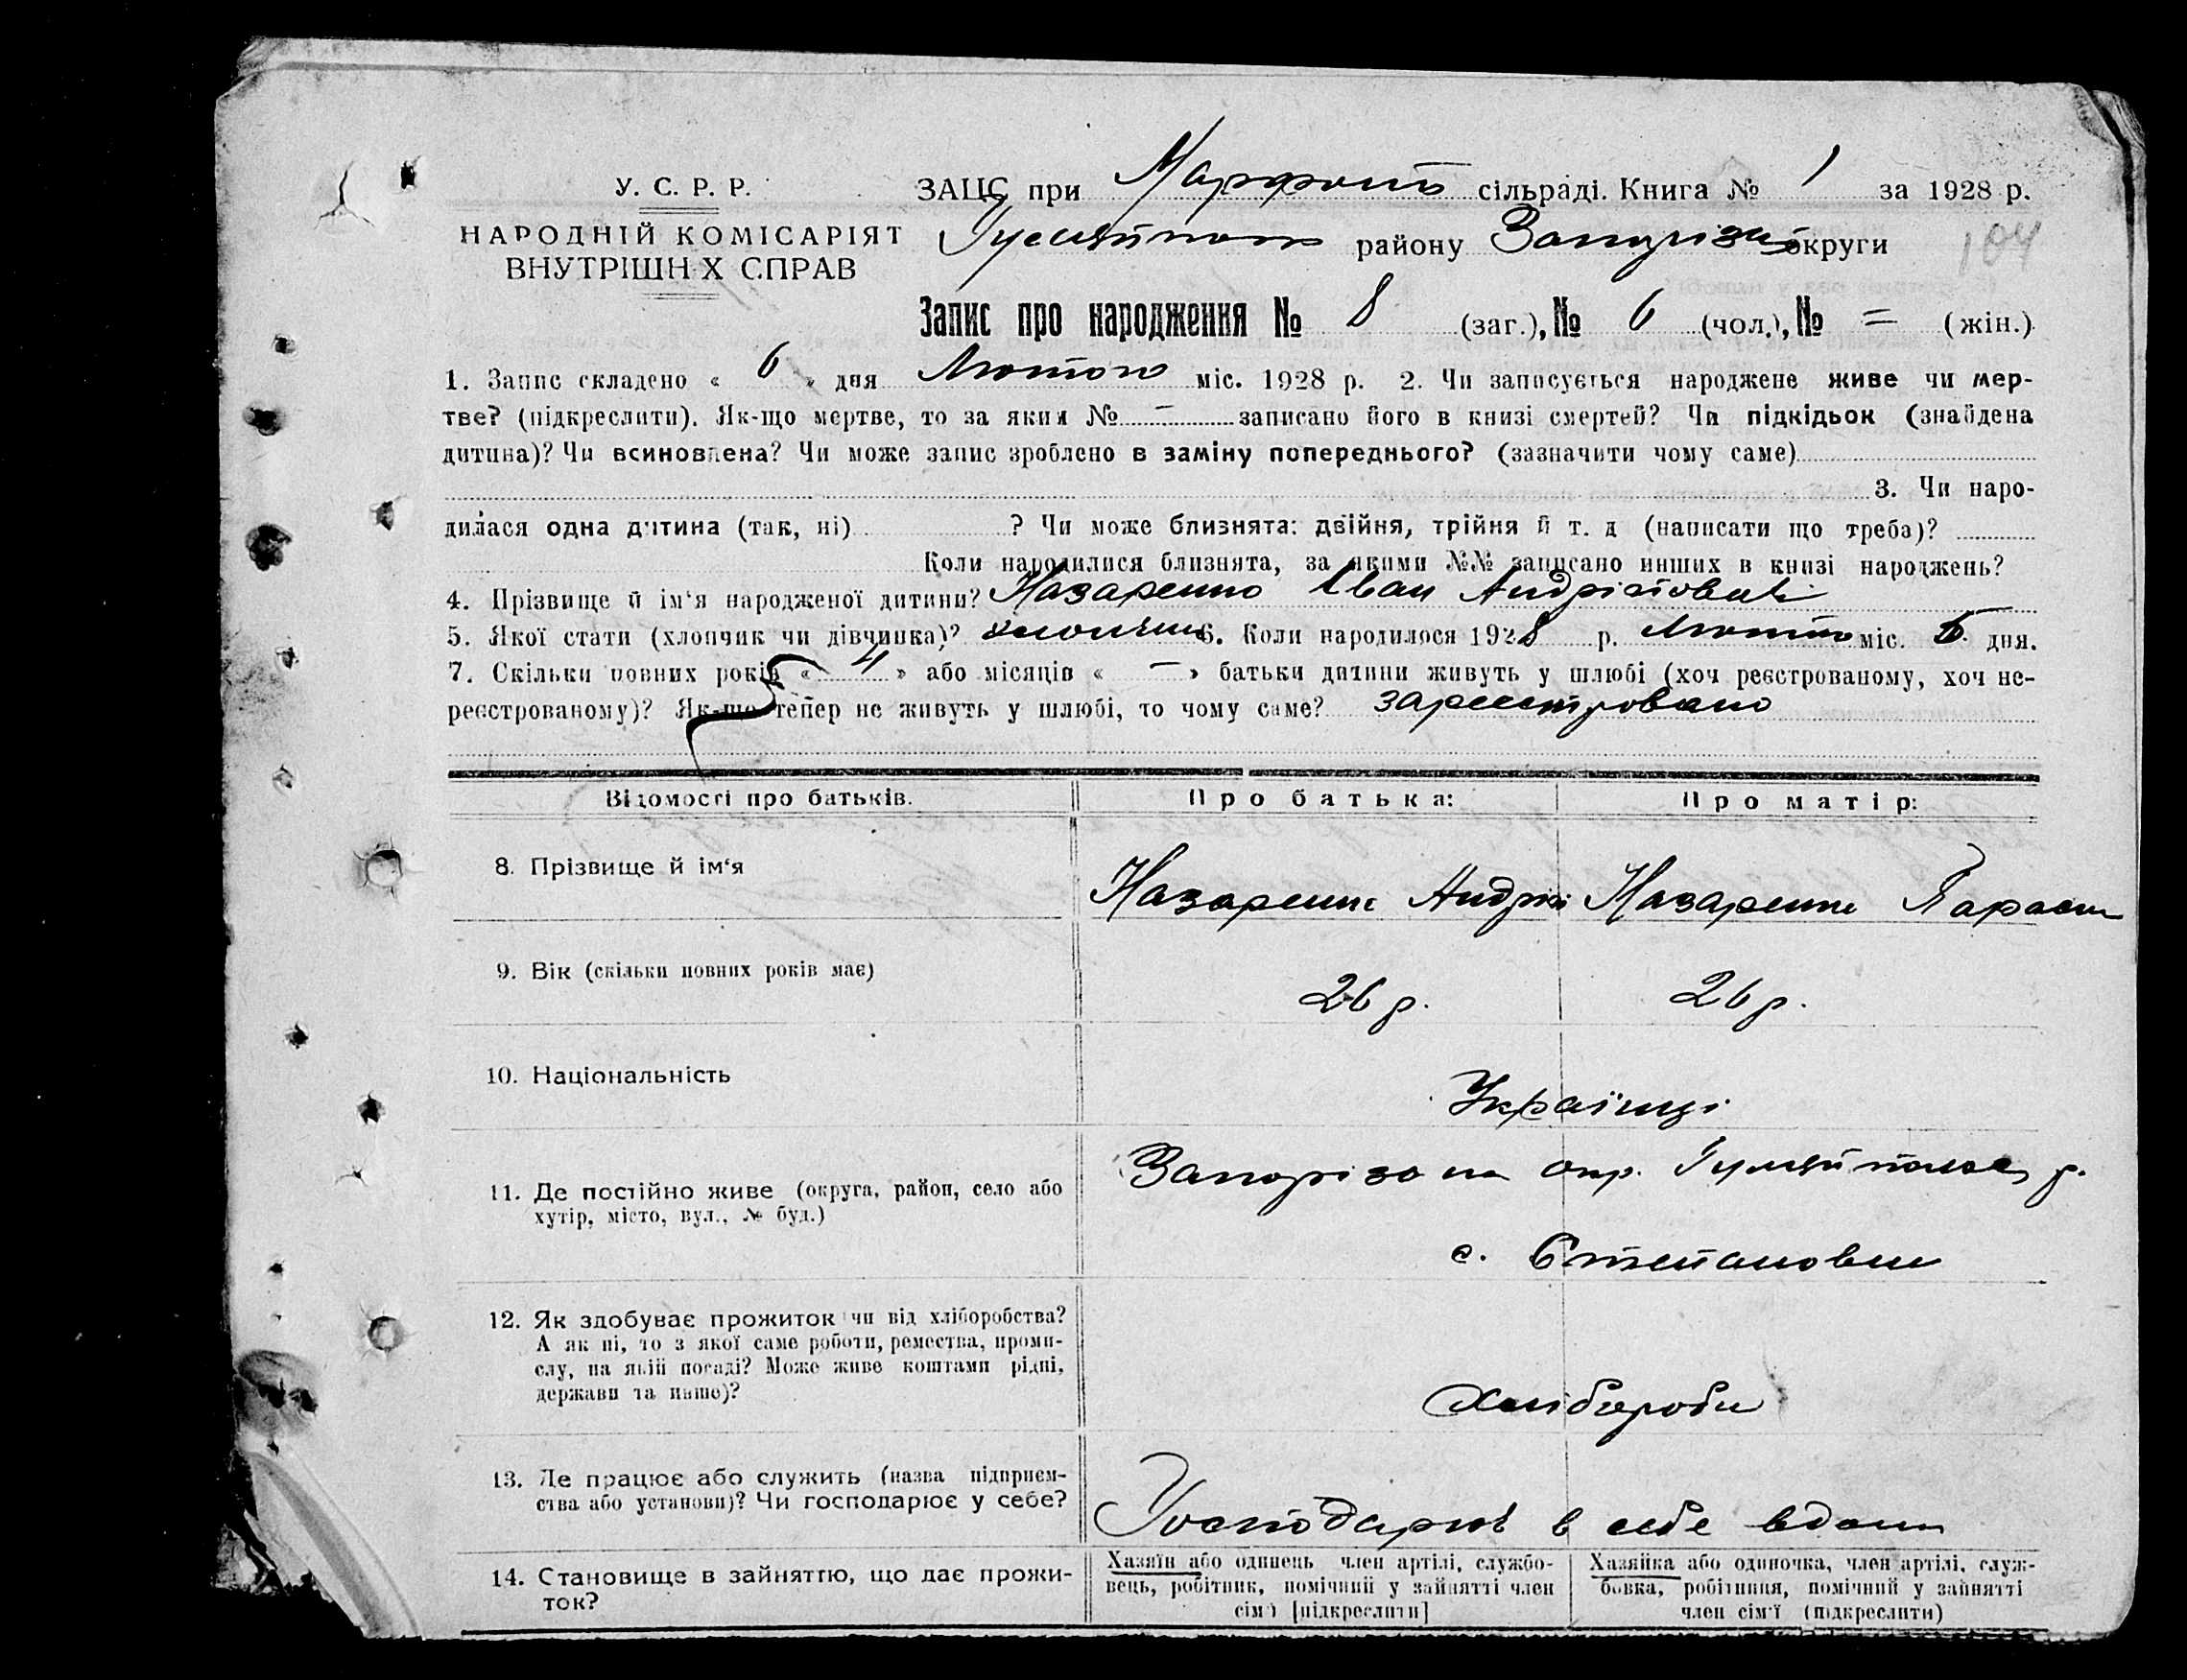 У. С. Р. Р.
НАРОДНІЙ КОМІСАРІЯТ
ВНУТРІШН Х СПРАВ
ЗАЦС при Марфоп сільраді. Книга № 1 за 1928 р.
району Запоріз округи
104
Запис про народження № 8 (заг.), № 6 (чол.), № = (жін.)
1. Запис складено « 6 » дня Лютого міс. 1928 р. 2. Чи записується народжене живе чи мер-
тве? (підкреслити). Як-що мертве, то за яким № — записано його в книзі смертей? Чи підкідьок (знайдена
дитина)? Чи всиновлена? Чи може запис зроблено в заміну попереднього? (зазначити чому саме)
3. Чи наро-
дилася одна дитина (так, ні) ? Чи може близнята: двійня, трійня й т. д (написати що треба)?
Коли народилися близнята, за якими №№ записано инших в книзі народжень?
4. Прізвище й ім‘я народженої дитини? Назаренко Іван Андрієтович
5. Якої стати (хлопчик чи дівчинка)? хлопчик 6. Коли народилося 1928 р. Лютого міс. 5 дня.
7. Скільки повних років « 4 » або місяців « — » батьки дитини живуть у шлюбі (хоч реєстрованому, хоч не-
реєстрованому)? Як-що тепер не живуть у шлюбі, то чому саме? зареєстровано
Відомості про батьків. Про батька: Про матір:
8. Прізвище й ім‘я Назаренко Андрій Назаренко Параска
9. Вік (скільки повних років має) 26 р. 26 р.
10. Національність Українці
11. Де постійно живе (округа, район, село або
хутір, місто, вул., № буд.)
Запорізька окр. р.
с. Степановка
12. Як здобуває прожиток чи від хліборобства?
А як ні, то з якої саме роботи, ремества, проми-
слу, на якій посаді? Може живе коштами рідні,
держави та инше)?
Хлібороби
13. Де працює або служить (назва підприєм-
ства або установи)? Чи господарює у себе?
Господарює в себе вдома
14. Становище в зайняттю, що дає прожи-
ток?
Хазяїн або одинець член артілі, службо-
вець, робітник, помічний у зайнятті член
сім‘ї [підкреслити]
Хазяйка або одиночка, член артілі, служ-
бовка, робітниця, помічний у зайнятті
член сім'ї (підкреслити)